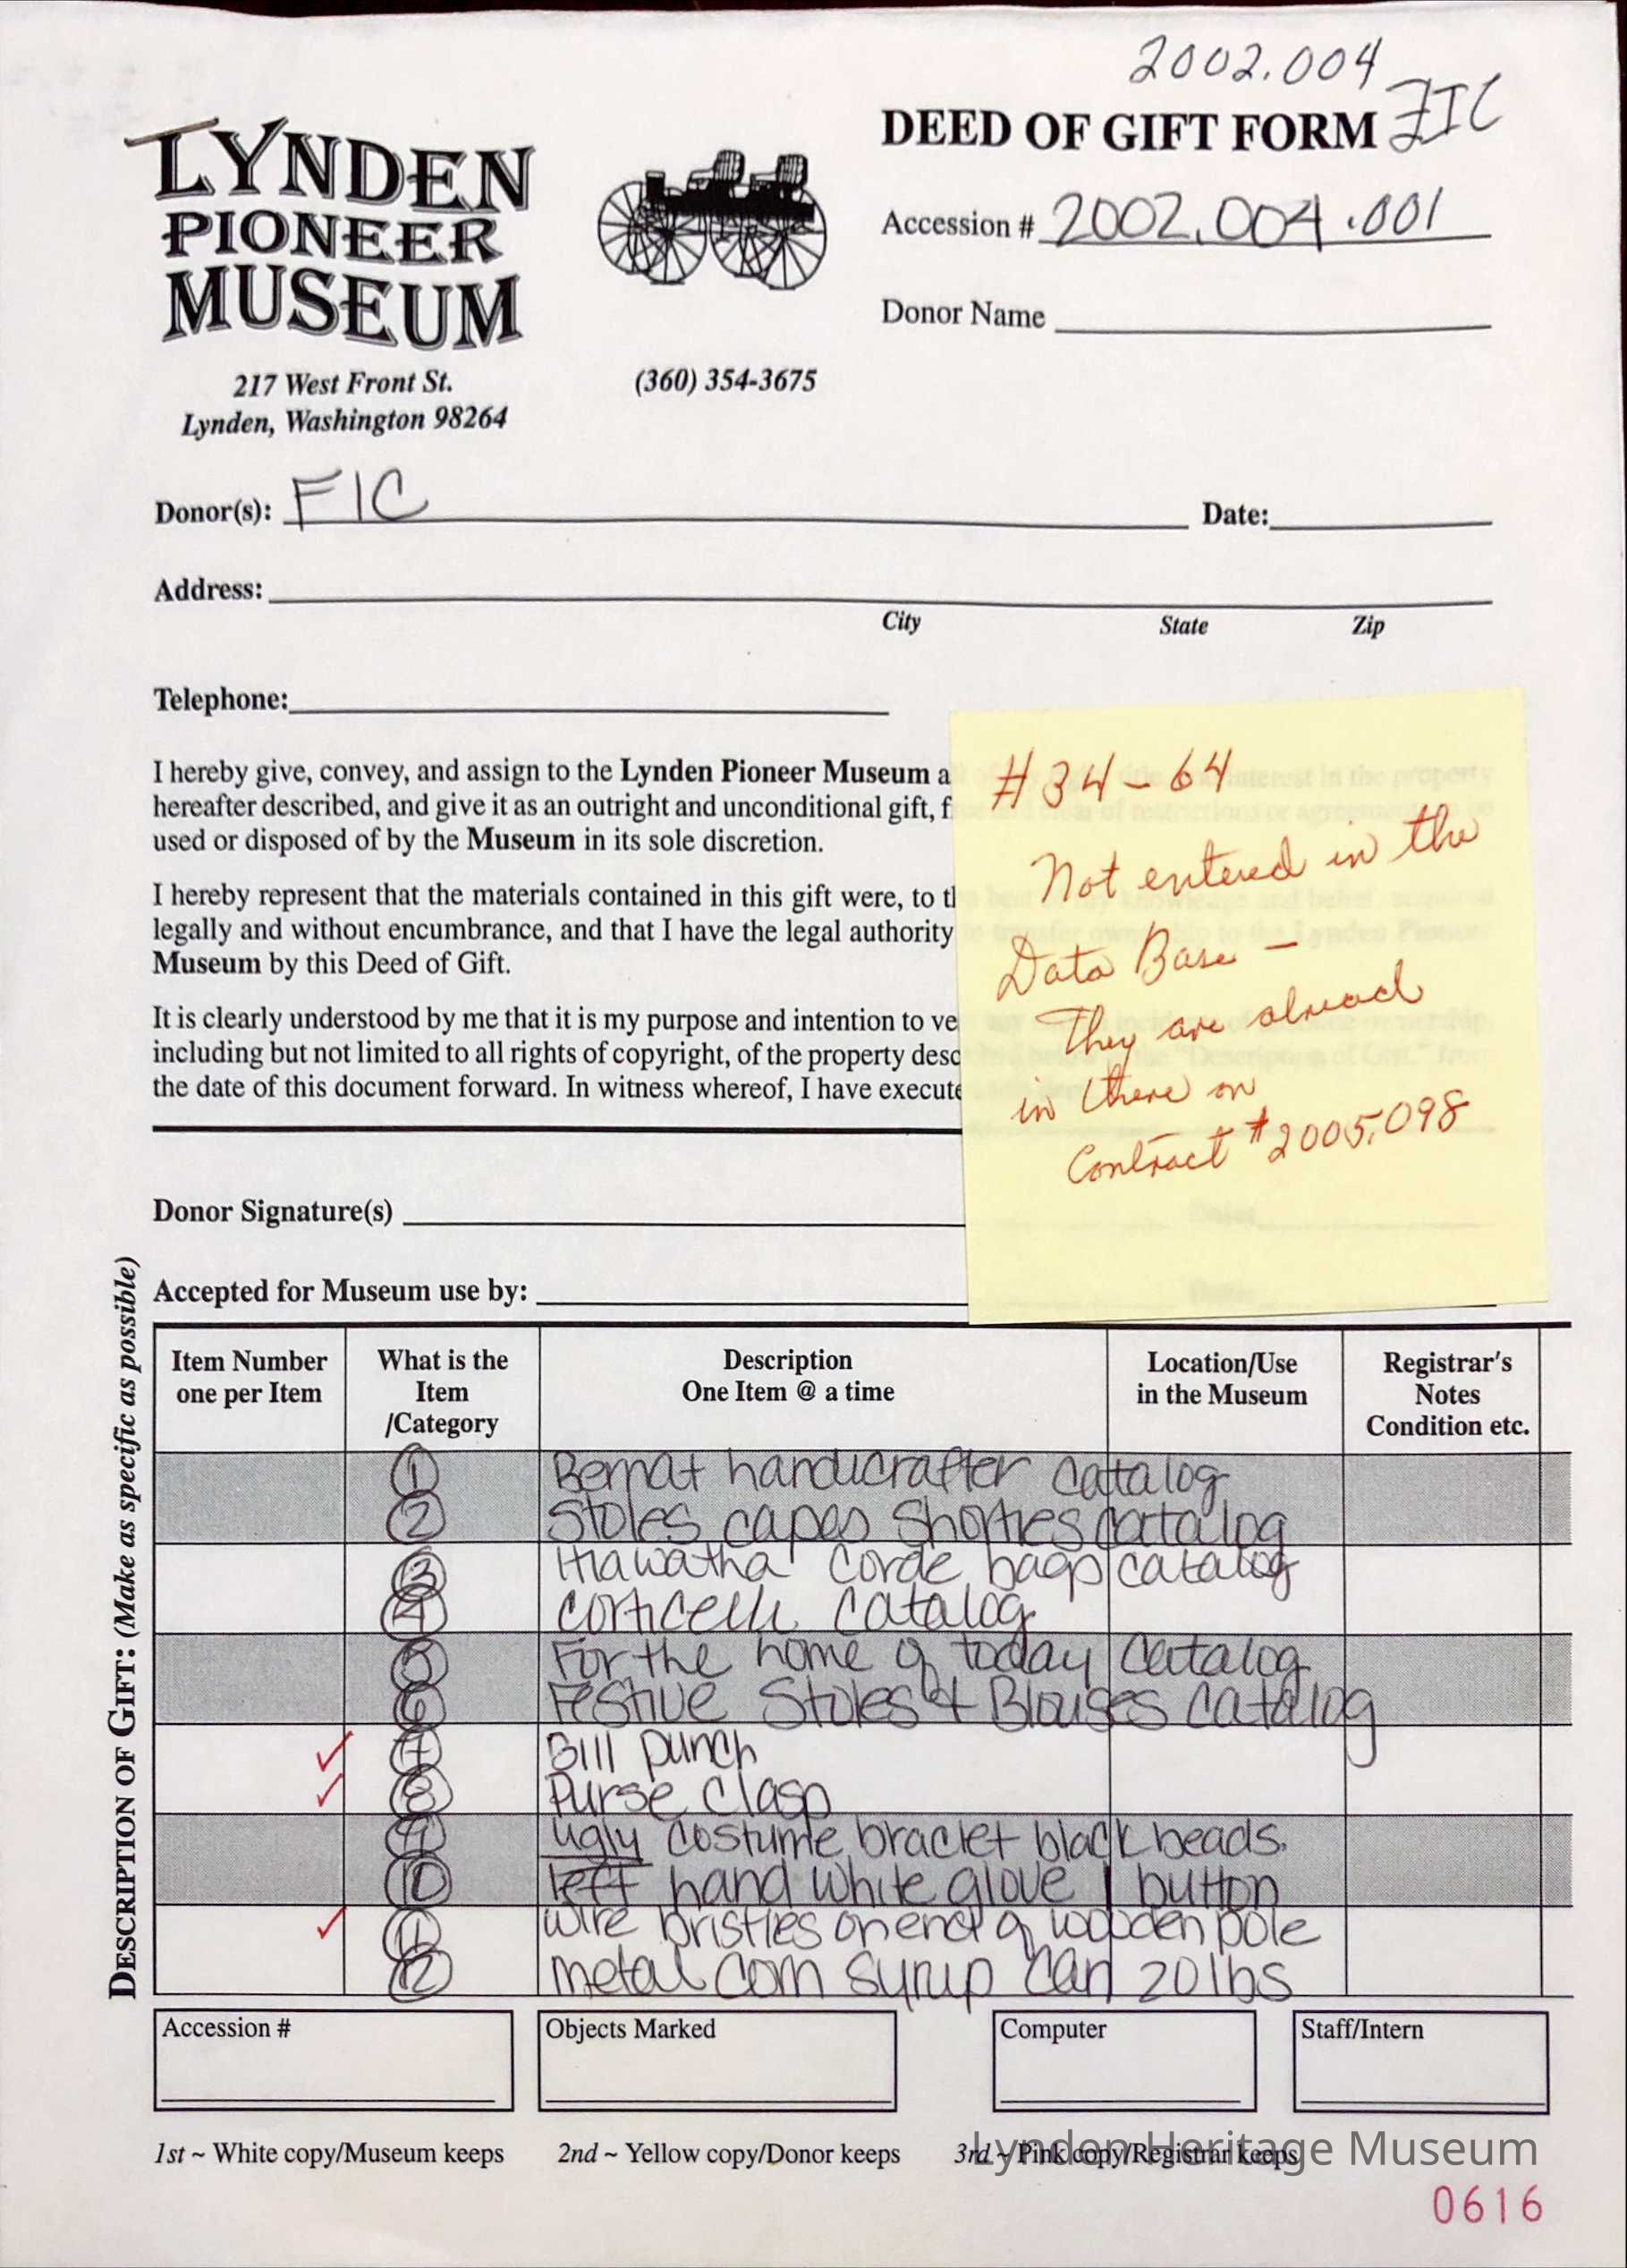 2002.004
DEED OF GIFT FORM FIC
LYNDEN
PIONEER
MUSEUM
Accession # 2002.004.001
Donor Name
217 West Front St.
Lynden, Washington 98264
(360) 354-3675
Donor(s): FIC Date:
Address:
City State Zip
Telephone:
I hereby give, convey, and assign to the Lynden Pioneer Museum a
hereafter described, and give it as an outright and unconditional gift, f
used or disposed of by the Museum in its sole discretion.
I hereby represent that the materials contained in this gift were, to t
legally and without encumbrance, and that I have the legal authority
Museum by this Deed of Gift.
It is clearly understood by me that it is my purpose and intention to ve
including but not limited to all rights of copyright, of the property desc
the date of this document forward. In witness whereof, I have execute
#34-64
Not entered in the
Data Base -
They are alread
in there on
Contract #2005.098
Donor Signature(s)
Accepted for Museum use by:
DESCRIPTION OF GIFT: (Make as specific as possible)
Item Number
one per Item
What is the
Item
/Category
Description
One Item @ a time
Location/Use
in the Museum
Registrar's
Notes
Condition etc.
1 Bernat handicrafter catalog
2 Stoles capes shorties catalog
3 Hiawatha corde bags catalog
4 corticelli catalog
5 For the home of today catalog
6 Festive Stoles & Blouses catalog
✓ 7 Bill punch
✓ 8 Purse clasp
9 ugly costume braclet black beads.
10 left hand white glove 1 button
✓ 11 wire bristles on end of wooden pole
12 metal corn syrup can 20 lbs
Accession #
Objects Marked
Computer
Staff/Intern
1st ~ White copy/Museum keeps 2nd ~ Yellow copy/Donor keeps 3rd ~ Pink copy/Registrar keeps
Lynden Heritage Museum
0616